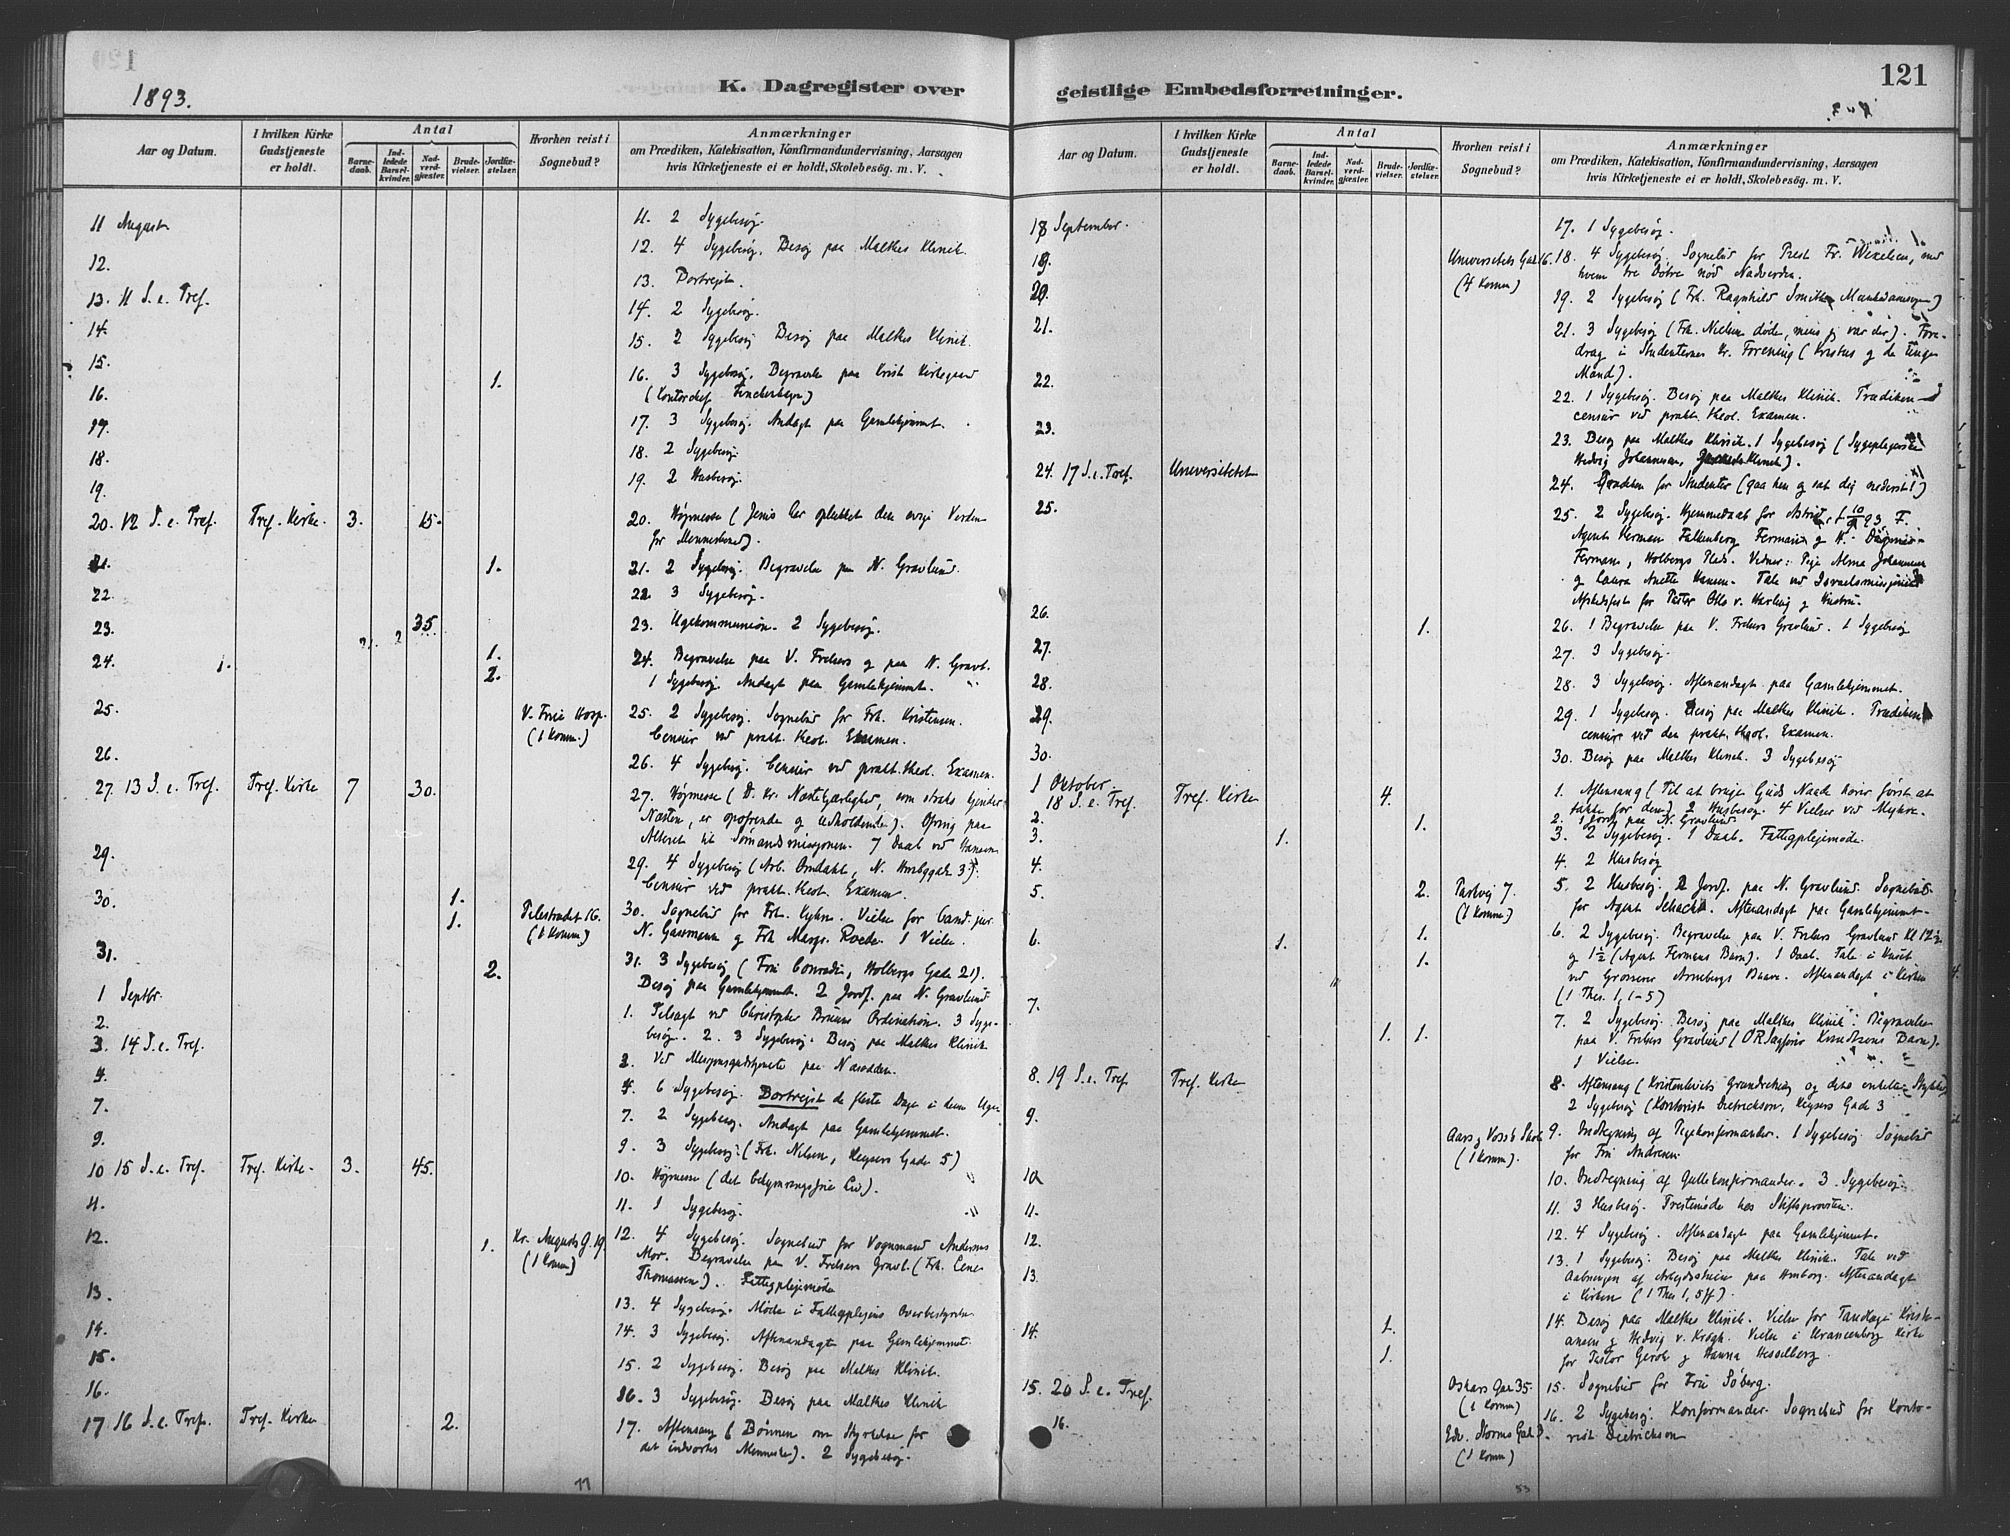 1893.
K. Dagregister over
Aar og Datum.
I hvilken Kirke Gudstjeneste er holdt.
Antal
Barne-daab.
Ind-ledede Barsel-kvinder.
Nad-verd-gjæster.
Brude-vielser.
Jordfæ-stelser.
Hvorhen reist i Sognebud?
Anmærkninger
om Prædiken, Katekisation, Konfirmandundervisning, Aarsagen
hvis Kirketjeneste ei er holdt, Skolebesøg. m. V.
11 August 11. 2 Sygebesøg.
12. 12. 4 Sygebesøg. Besøg paa Malthes Klinik.
13. 11 S. e. Tref. 13. Bortrejst.
14. 14. 2 Sygebesøg.
15. 15. 2 Sygebesøg Besøg paa Malthes Klinik.
16. 1. 16. 3 Sygebesøg. Begravelse paa Krist Kirkegaard
(Kontorchef
17. 17. 3 Sygebesøg. Andagt paa Gamlehjemmet.
18. 18. 2 Sygebesøg.
19. 19. 2 Husbesøg.
20. 12 S. e. Tref. Tref. Kirke. 3. 15. 20. Højmesse (Jesus har oplukket den evige Verden
for Menneskene).
21. 1. 21. 2 Sygebesøg. Begravelse paa N. Gravlund.
22. 22. 3 Sygebesøg.
23. 35. 23. Ugekommunion. 2 Sygebesøg.
24. 1. 24. Begravelse paa V. Frelsers og paa N. Gravl.
2. 1 Sygebesøg. Andagt paa Gamlehjemmet.
25. V. Frue Hosp. 25. 2 Sygebesøg. Sognebud for Frk. Kristensen.
(1 Komm.) Censur ved prakt. theol. Examen.
26. 26. 4 Sygebesøg. Censur ved prakt. theol. Examen.
27. 13 S. e. Tref. Tref. Kirke 7 30. 27. Højmesse (D. kr. Næstekjærlighed, som straks kjender
Næsten, er opofrende og udholdende). Ofring paa
Alteret til Sømandsmissionen. 7 Daab ved Hansen
29. 29. 4 Sygebesøg (Arb. Omdahl, N. 3).
Censur ved prakt. theol. Examen.
30. 1. Pilestrædet 16. 30. Sognebud for Frk. Kyhn. Vielse for Cand. jur.
1. (1 Komm.) N. Gassmann og Frk Margr. Roede. 1 Vielse.
31. 2. 31. 3 Sygebesøg (Fru Conradi, Holbergs Gade 21).
Besøg paa Gamlehjemmet. 2 Jordf. paa N. Gravlund
1 Septbr. 1. Tilsagt ved Christopher Bruuns Ordination. 3 Syge-
2. besøg. 2. 3 Sygebesøg. Besøg paa Malthes Klinik
3. 14 S. e. Tref. 3. Ved paa Næsodden.
4. 4. 6 Sygebesøg. Bortrejst de fleste Dage i denne Uge.
7. 7. 2 Sygebesøg. Andagt paa Gamlehjemmet.
9. 9. 3 Sygebesøg. (Frk. Nilsen, Keysers Gade 5)
10 15 S. e. Tref. Tref. Kirke. 3. 45. 10. Højmesse (det bekymringsfrie Liv).
11. 11. 1 Sygebesøg.
12. 1. Kr. Augusts G. 19. 12. 4 Sygebesøg. Sognebud for Vognmand Andersens
(1 Komm) Mor. Begravelse paa V. Frelsers Gravl. (Frk. Lene
Thomassen). Fattigplejemøde
13. 13. 4 Sygebesøg. Møde i Fattigplejens Overbestyrelse
14. 14. 3 Sygebesøg. Aftenandagt paa Gamlehjemmet.
15. 15. 2 Sygebesøg. Besøg paa Malthes Klinik.
16. 16. 3 Sygebesøg. Besøg paa Malthes Klinik
17 16 S. e. Tref. Tref. Kirke 2. 17. Aftensang (Bønnen om Styrkelse for
det indvortes Menneske). 2 Sygebesøg.
geistlige Embedsforretninger.
121
Aar og Datum.
I hvilken Kirke Gudstjeneste er holdt.
Antal
Barne-daab.
Ind-ledede Barsel-kvinder.
Nad-verd-gjæster.
Brude-vielser.
Jordfæ-stelser.
Hvorhen reist i Sognebud?
Anmærkninger
om Prædiken, Katekisation, Konfirmandundervisning, Aarsagen
hvis Kirketjeneste ei er holdt, Skolebesög. m. V.
18 September. 17. 1 Sygebesøg.
19. Universitets Gad. 16. 18. 4 Sygebesøg. Sognebud for Prest Fr. Wexelsen, med
(4 Komm) hvem tre Døtre nød Nadverden.
20. 19. 2 Sygebesøg (Frk. Ragnhild Smith, Munkedamsvejen)
21. 21. 3 Sygebesøg (Frk. Nielsen døde, mens jeg var der). Fore-
drag i Studenternes kr. Forening (Kristus og de unge
Mænd).
22. 22. 1 Sygebesøg. Besøg paa Malthes Klinik. Prædiken-
censur ved prakt. theol. Examen.
23. 23. Besøg paa Malthes Klinik. 1 Sygebesøg (Sygeplejerske
Hedvig Johannesen, Klinik).
24. 17 S. e. Tref. Universitetet 24. Prædiken for Studenter (gaa hen og sæt dig nederst!)
25. 25. 2 Sygebesøg. Hjemmedaab for Astrid, f. 10/9 93. F.
Agent Herman Falkenberg Fermann og H.
Fermann, Holbergs Plads. Vidner: Pige Alma Johannesen
og Laura Anette Hansen. Tale ved Israelsmissionens
Afskedsfest for Pastor Otto v. Harling og Hustru.
26. 1. 26. 1 Begravelse paa V. Frelsers Gravlund. 1 Sygebesøg
27. 27. 3 Sygebesøg.
28. 28. 3 Sygebesøg. Aftenandagt paa Gamlehjemmet.
29. 29. 1 Sygebesøg. Besøg paa Malthes Klinik. Prædiken
censur ved den prakt. theol. Examen.
30. 30. Besøg paa Malthes Klinik. 3 Sygebesøg
1 Oktober
18 S. e. Tref. Tref. Kirke 4. 1. Aftensang (Til at bruge Guds Naade hører først at
takke for den). 2 Husbesøg. 4 Vielser ved Meyhre.
2. 1. 2. 1 Jordf. paa N. Gravlund
3. 1. 3. 2 Sygebesøg. 1 Daab. Fattigplejemøde.
4. 4. 2 Husbesøg
5. 2. Parkvej 7. 5. 2 Husbesøg. 2 Jordf. paa N. Gravlund. Sognebud
(1 Komm) for Agent Schacht. Aftenandagt paa Gamlehjemmet.
6. 1. 1. 6. 2 Sygebesøg. Begravelse paa V. Frelsers Gravlund Kl 12½
1. og 1½ (Agent Fermans Barn). 1 Daab. Tale i Huset
ved Grosserer Arnebergs Baare. Aftenandagt i Kirken
(1 Thes. 1, 1-5)
7. 1. 1. 7. 2 Sygebesøg. Besøg paa Malthes Klinik. Begravelse
paa V. Frelsers Gravlund (ORSagfører Knudtzons Barn).
1 Vielse.
8. 19 S. e. Tref Tref. Kirke 8. Aftensang (Kristenlivets Grundretning og dets enkelte Stykker)
2 Sygebesøg (Kontorist Dietrichson, Keysers Gade 3
9. Aars og Voss's Skole 9. Indtegning af Pigekonfirmander. 1 Sygebesøg Sognebud
(1 Komm). for Fru Andresen
10 10. Indtegning af Guttekonfirmander. 3 Sygebesøg
11. 11. 3 Husbesøg. Prestemøde hos Stiftsprovsten.
12. 12. 4 Sygebesøg. Aftenandagt paa Gamlehjemmet.
13. 13. 1 Sygebesøg. Besøg paa Malthes Klinik. Tale ved
Aabningen af Arbejdsstuen paa Homborg. Aftenandagt
i Kirken (1 Thes 1, 5 ff).
14. 1. 14. Besøg paa Malthes Klinik. Vielse for Tandlæge Kristi-
ansen og Hedvig v. Krogh. Vielse i Uranienborg Kirke
1. for Pastor Gerok og Hanna Hesselberg
15. 20 S. e. Tref. Oskars Gae 35. 15. Sognebud for Fru Søberg.
(1 Komm)
16. Edv. Storms Gad 3. 16. 2 Sygebesøg. Konfirmander. Sognebud for Konto-
(1 Komm) rist Dietrichson
77
53